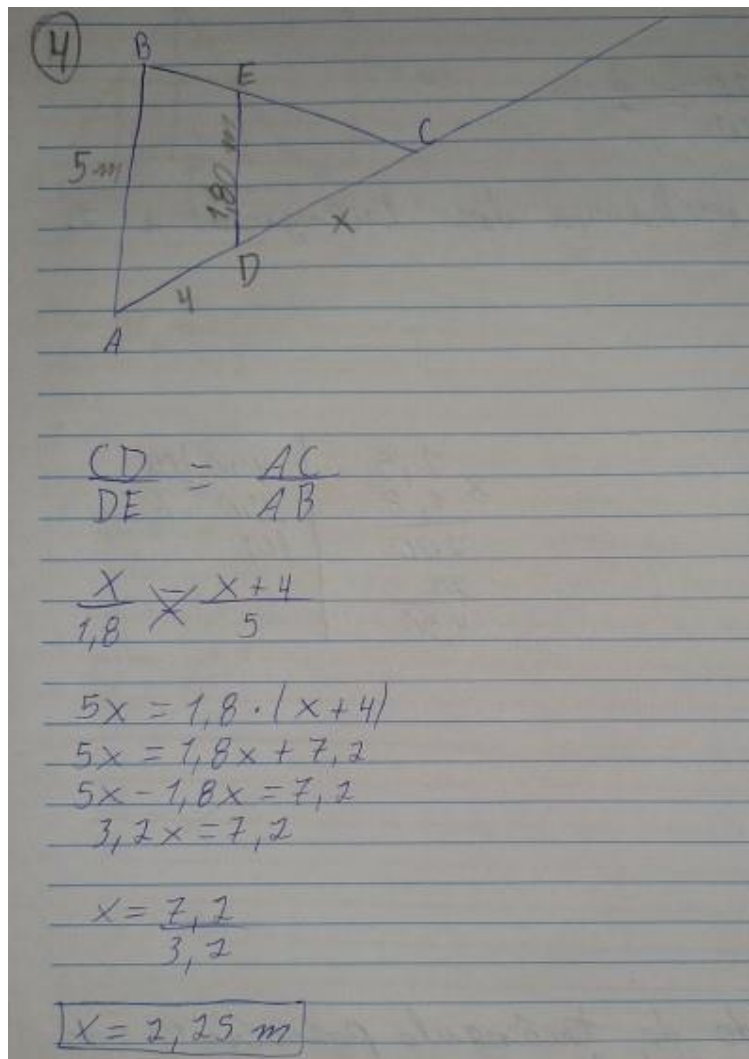 4
B
E
C
5 m
1,80 m
x
D
4
A
CD/DE = AC/AB
x/1,8 = x+4/5
5x = 1,8 · (x+4)
5x = 1,8x + 7,2
5x - 1,8x = 7,2
3,2x = 7,2
x = 7,2/3,2
x = 2,25 m